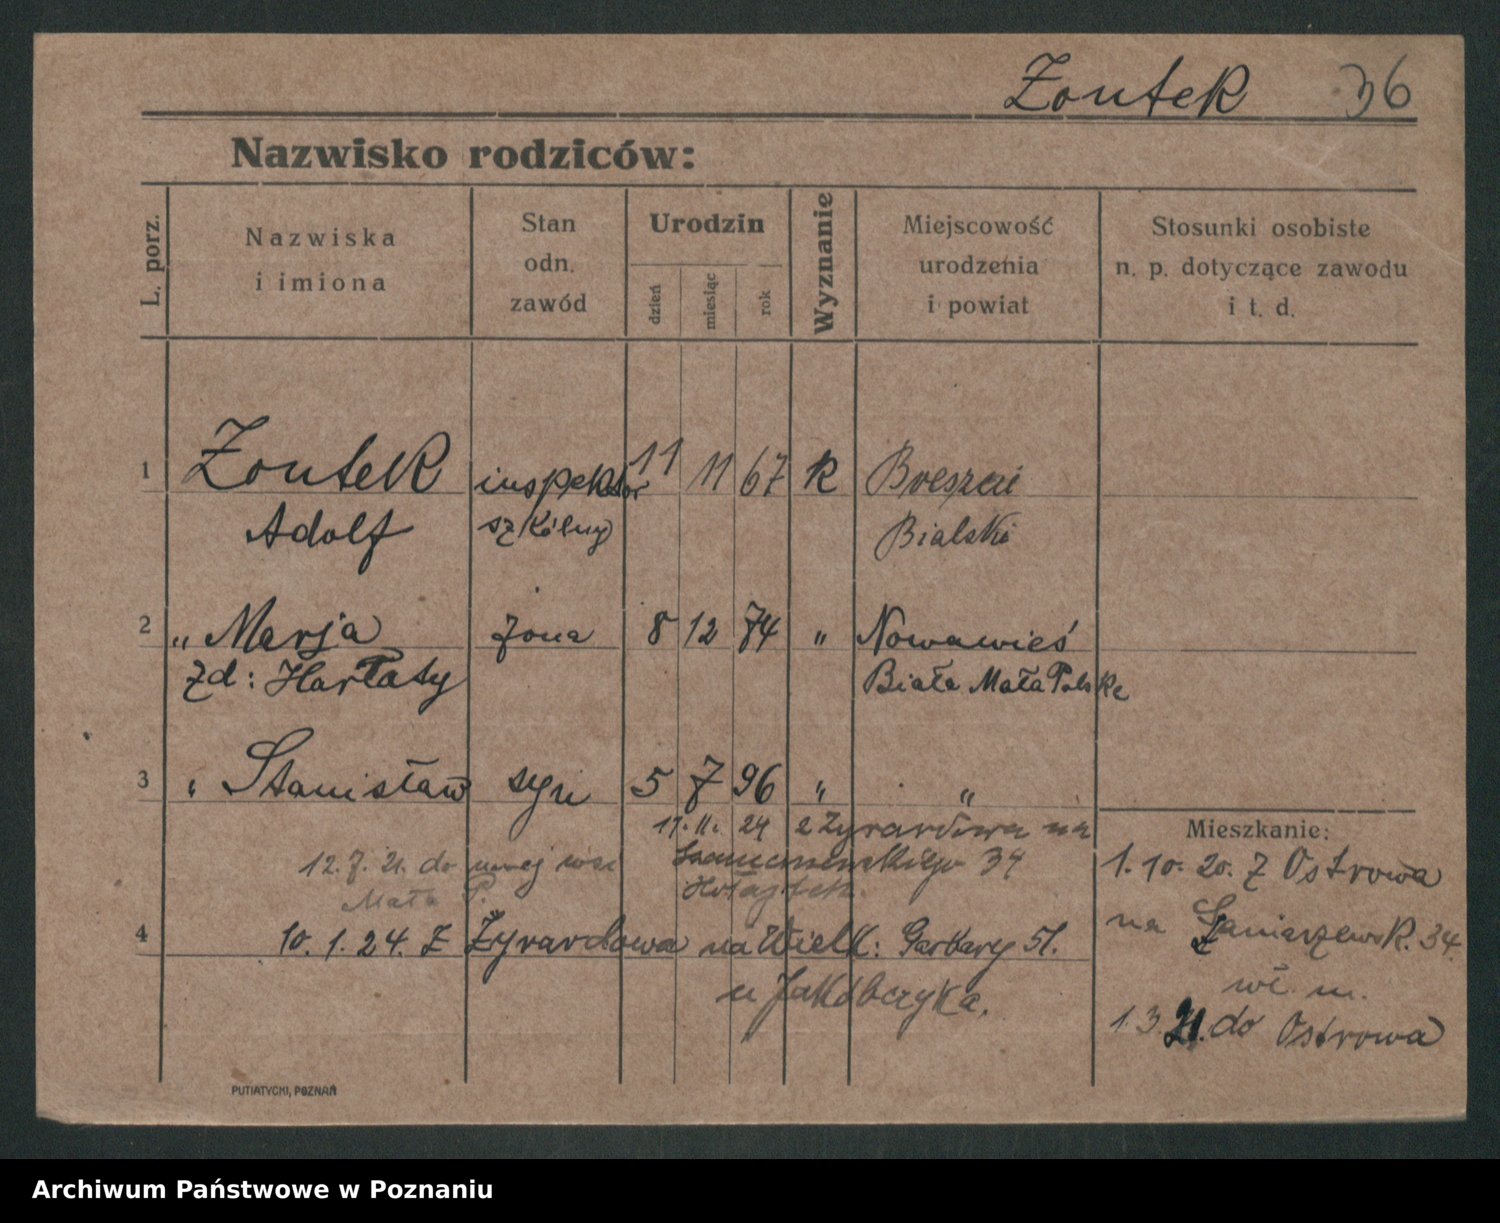 Zontek 36
Nazwisko rodziców:
L. porz.
Nazwiska
i imiona
Stan
odn.
zawód
Urodzin
dzień
miesiąc
rok
Wyznanie
Miejscowość
urodzenia
i powiat
Stosunki osobiste
n. p. dotyczące zawodu
i t. d.
1 Zontek inspektor 11 11 67 k
Adolf szkólny Bialski
2 „ Marja żona 8 12 74 „ Nowawieś
zd: Harłasy Biała Mała Polska
3 „ Stanisław syn 5 7 96 „ „
17. II. 24 z Żyrardowa na
34
12. 7. 21. do nowej wsi
Mała P.
4 10. 1. 24. z Żyrardowa na Wielk: Garbary 51.
u Jakóbczyka.
Mieszkanie:
1. 10. 20. z Ostrowa
na Szaniarzewsk. 34.
wł. m.
1. 3. 21. do Ostrowa
PUTIATYCKI, POZNAŃ
Archiwum Państwowe w Poznaniu